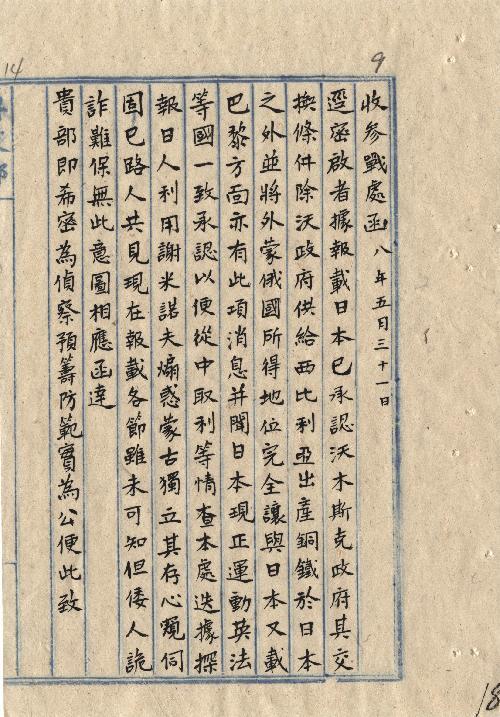 9
14
收參戰處函 八年五月三十一日
逕密啟者據報載日本已承認沃木斯克政府其交
換條件除沃政府供給西比利亞出產銅鐵於日本
之外並將外蒙俄國所得地位完全讓與日本又載
巴黎方面亦有此項消息并聞日本現正運動英法
等國一致承認以便從中取利等情查本處迭據探
報日人利用謝米諾夫煽惑蒙古獨立其存心窺伺
固已路人共見現在報載各節雖未可知但倭人詭
詐難保無此意圖相應函達
貴部即希密為偵察預籌防範實為公便此致
18